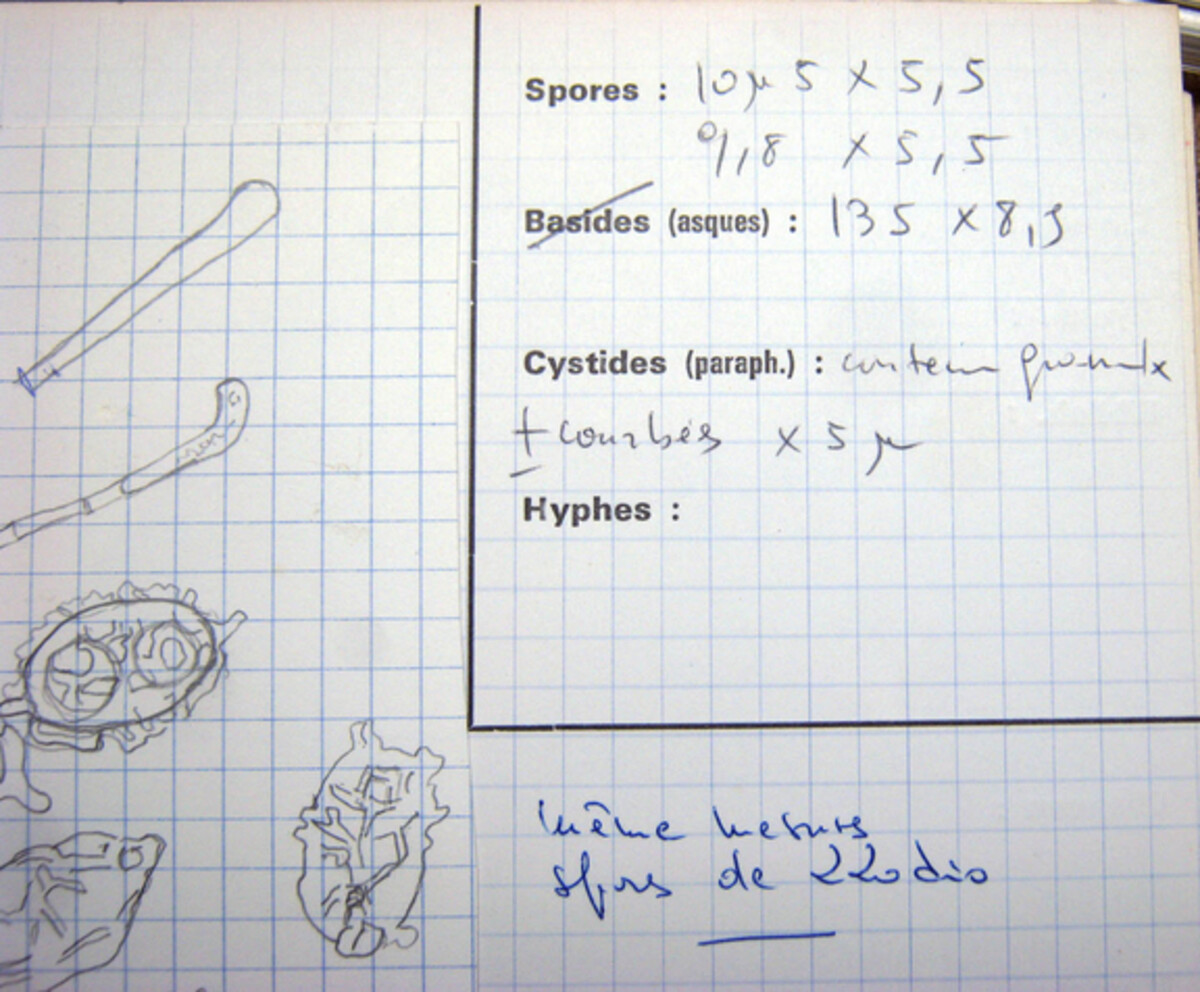 Spores : 10µ5 x 5,5
9,8 x 5,5
Basides (asques) : 135 x 8,5
Cystides (paraph.) :
± courbés x 5 µ
Hyphes :
même mesures
spores de